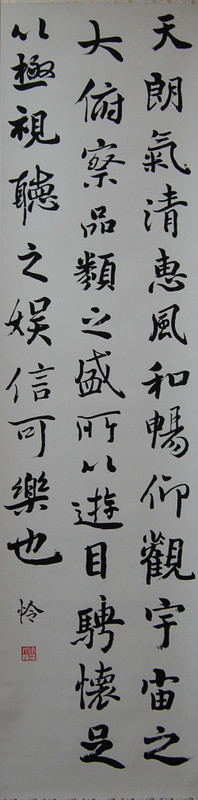 天朗氣清惠風和暢仰觀宇宙之
大俯察品類之盛所以遊目騁懷足
以極視聽之娱信可樂也
怜